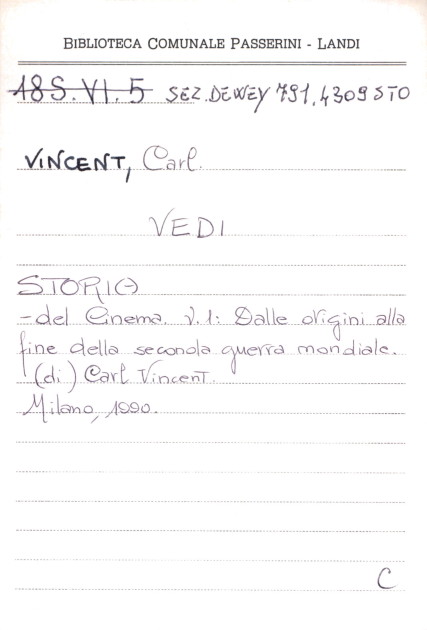 BIBLIOTECA COMUNALE PASSERINI - LANDI
18S.VI.5 SEZ.DEWEY 791.4309 STO
VINCENT, Carl.
VEDI
STORIA
-del Cinema. V.1: Dalle origini alla
fine della seconda guerra mondiale.
(di) Carl Vincent.
Milano, 1990.
C